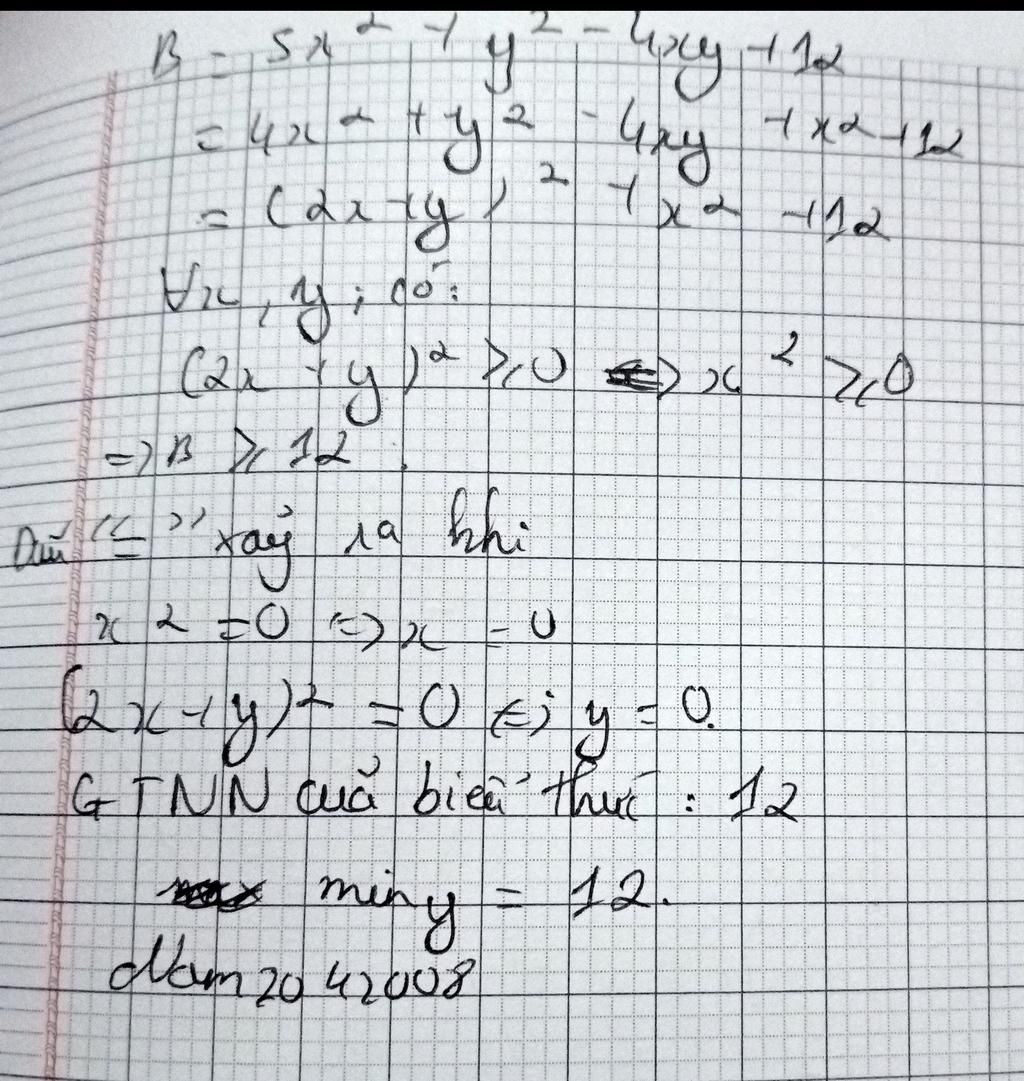 B = 5x² + y² - 4xy + 12
= 4x² + y² - 4xy + x² + 12
= (2x + y)² + x² + 12
∀x, y; có:
(2x + y)² ⩾ 0 x² ⩾ 0
=> B ⩾ 12.
Dấu "=" xảy ra khi
x² = 0 <=> x = 0
(2x + y)² = 0 <=> y = 0.
GTNN của biểu thức : 12
min y = 12.
Nam2042008